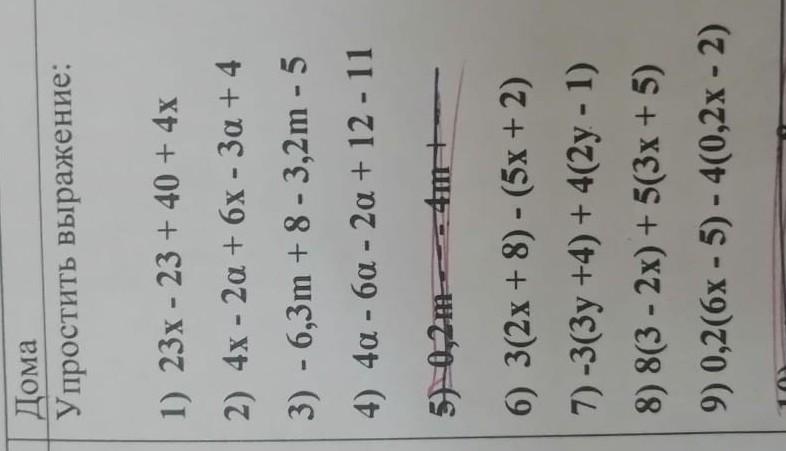 Дома
Упростить выражение:
1) 23x - 23 + 40 + 4x
2) 4x - 2a + 6x - 3a + 4
3) - 6,3m + 8 - 3,2m - 5
4) 4a - 6a - 2a + 12 - 11
5) 0,2m - - 4m +
6) 3(2x + 8) - (5x + 2)
7) -3(3y +4) + 4(2y - 1)
8) 8(3 - 2x) + 5(3x + 5)
9) 0,2(6x - 5) - 4(0,2x - 2)
10)